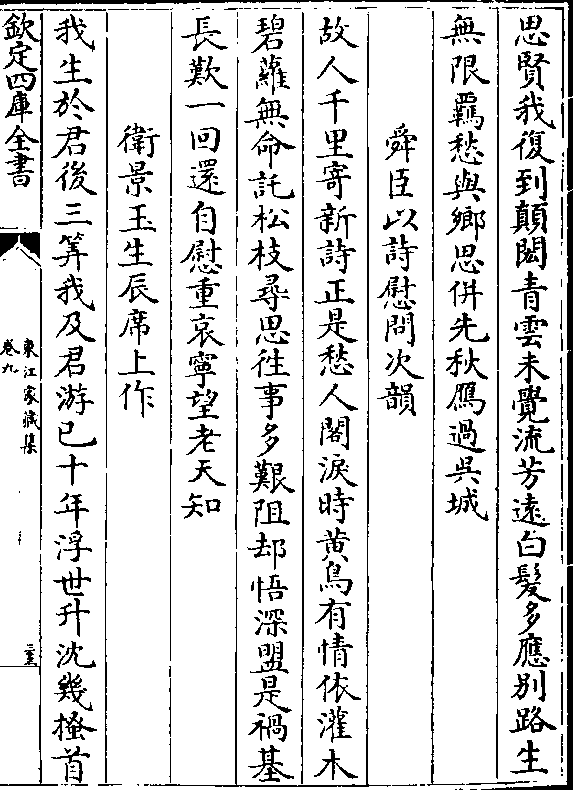 思賢我復到顛閎青雲未覺流芳遠白髮多應别路生
無限羈愁與鄉思併先秋鴈過吳城
舜臣以詩慰問次韻
故人千里寄新詩正是愁人閣淚時黄鳥有情依灌木
碧蘿無命託松枝尋思徃事多艱阻却悟深盟是禍基
長歎一回還自慰重哀寧望老天知
衛景玉生辰席上作
我生於君後三筭我及君游已十年浮世升沈幾搔首
欽定四庫全書
東江家藏集
卷九